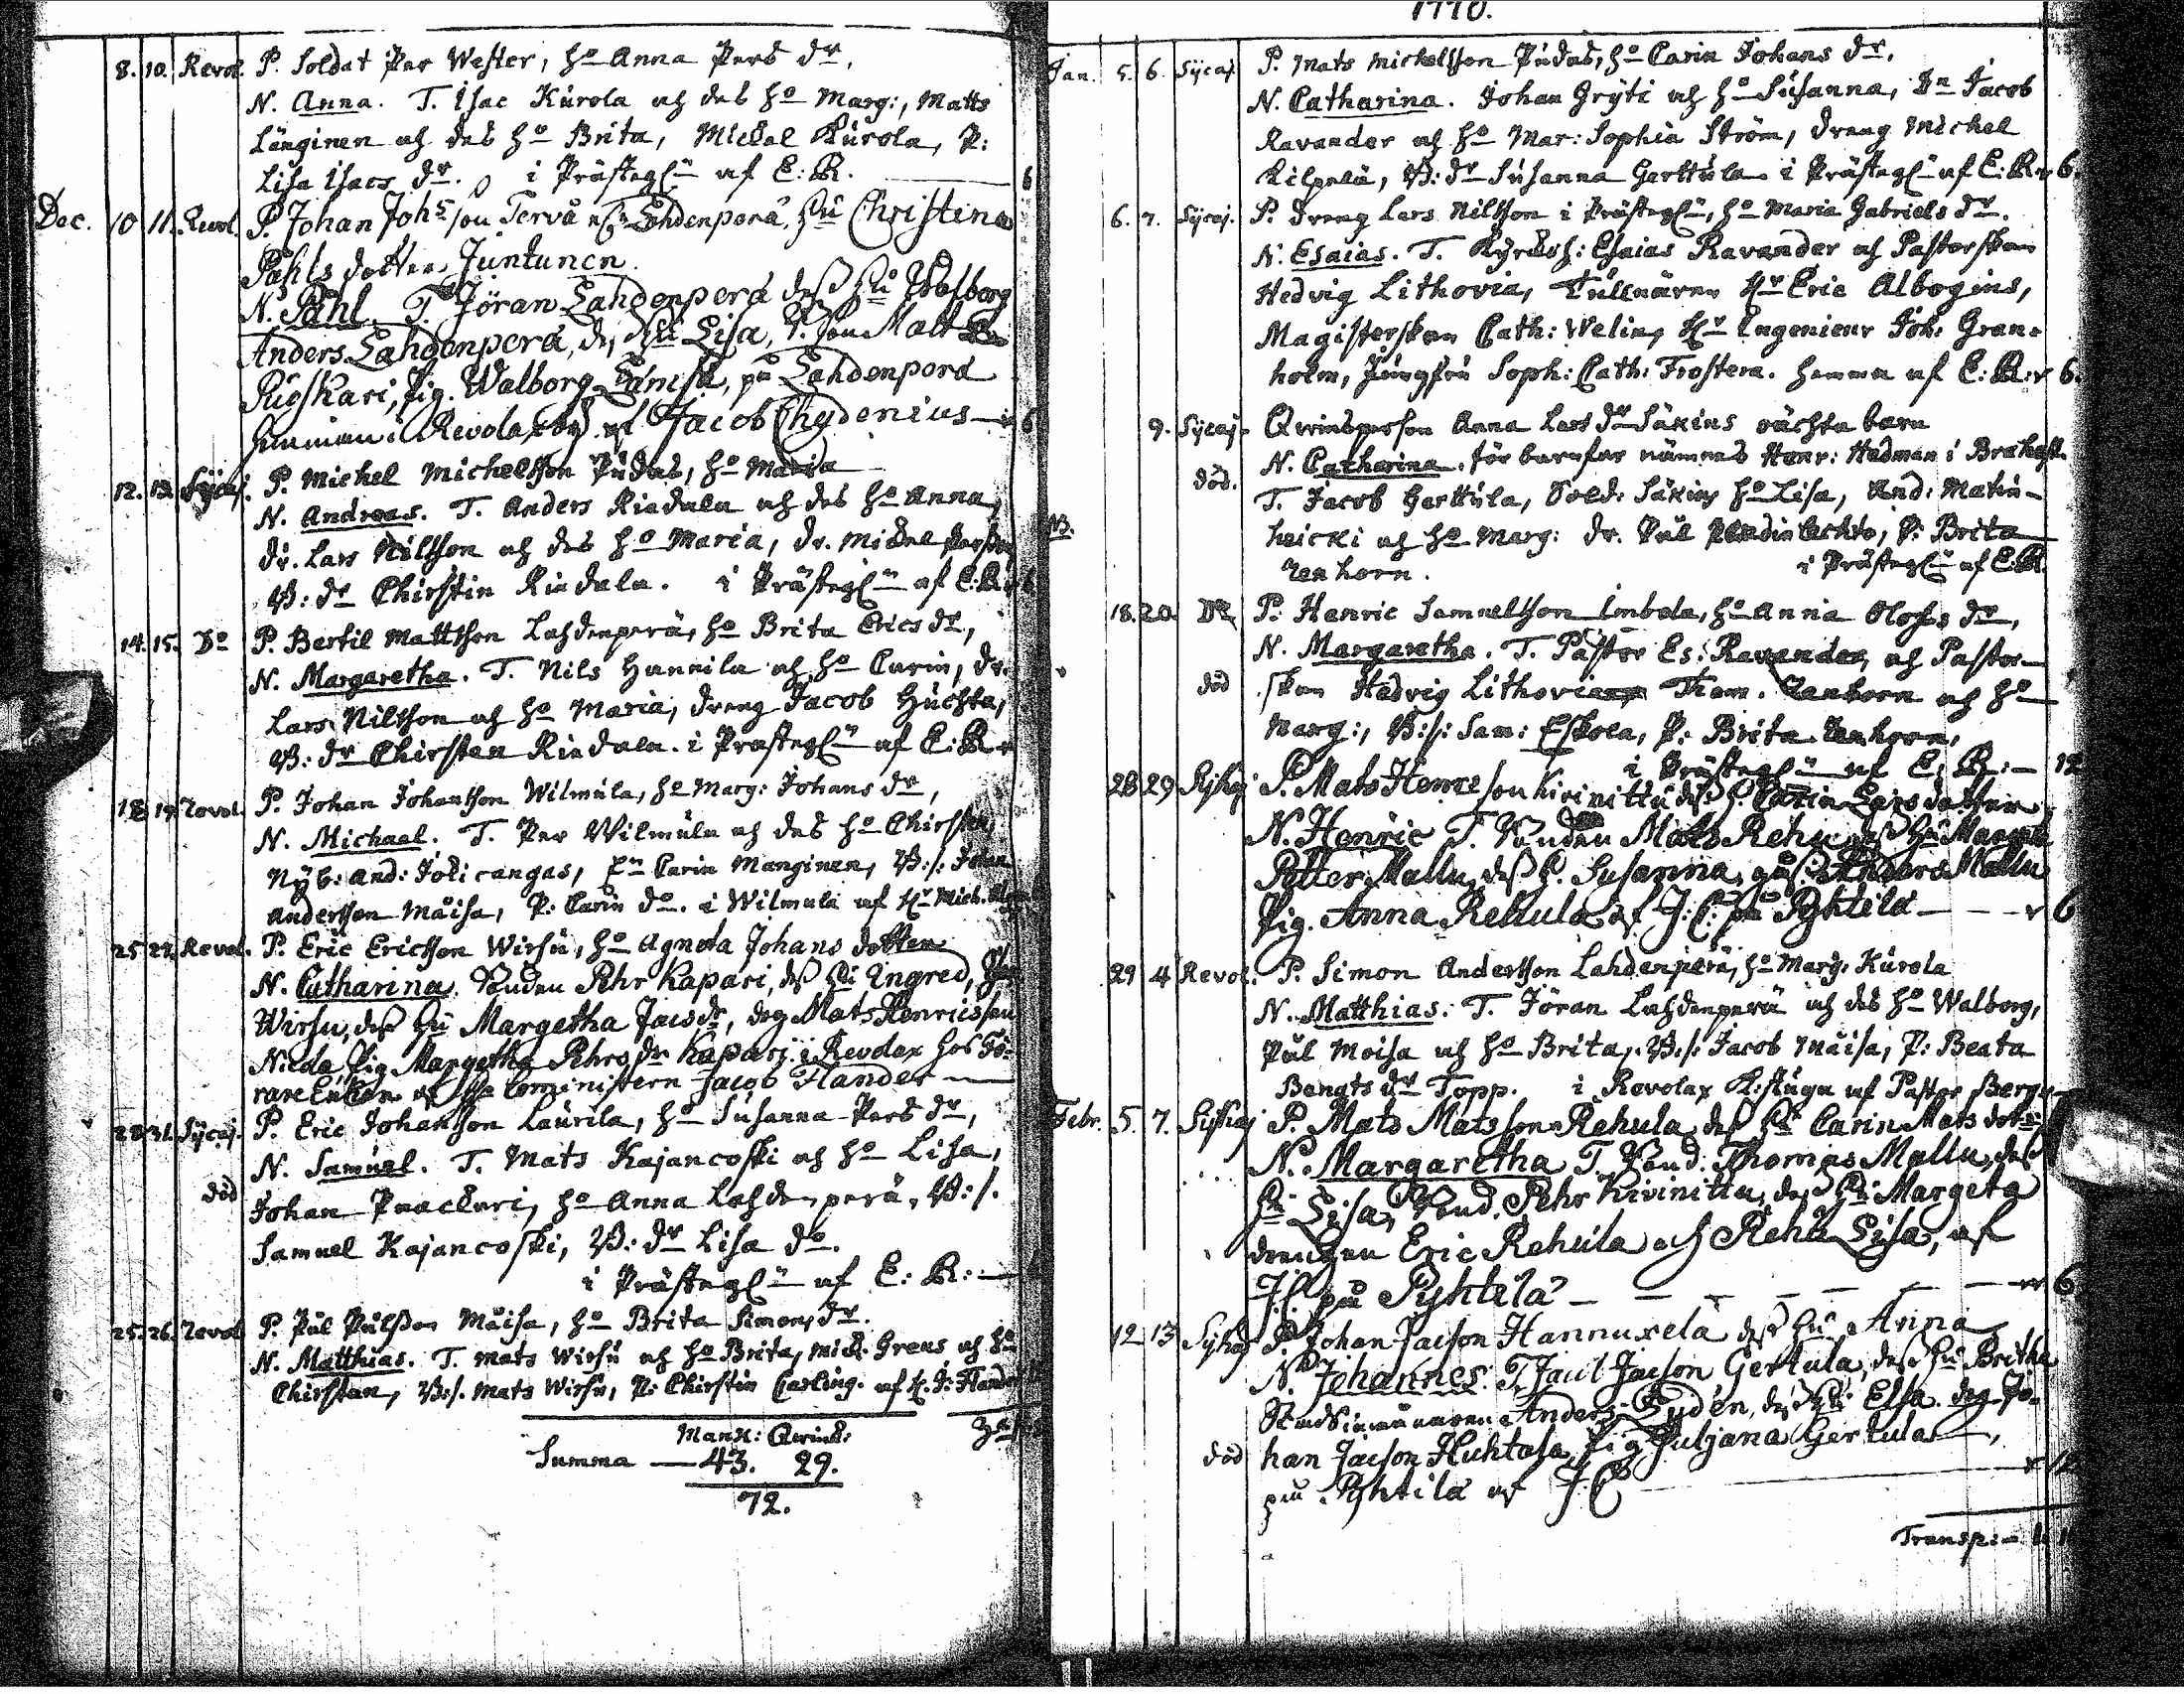 8. 10. Revol. P. Soldat Per Wester, ho Anna Pers dr,
N. Anna. T. Isac Kurola och des ho Marg:, Matts
Länginen och des ho Brita, Mickel Kurola, P:
Lisa Isacs dr. i Prästeg af E: R. 6
Dec. 10 11. Revol. P. Johan Johs son Tervå Lahdenperä, hu Christina
Påhls dotter Juntunen.
N. Påhl. T. Jöran Lahdenperä dess hu Walborg
Anders Lahdenperä, des hu Lisa, Matt
Ruoskari, Pig. Walborg på Lahdenperä
hemman i Revolax af Jacob Chydenius 6
12. 13. Sijcaj. P. Michel Michelsson Pudas, ho Maria
N. Andreas. T. Anders Riedula och des ho Anna,
dr. Lars Nilsson och des ho Maria, dr. Mickel
B: dr Chirstin Riedala. i Prästeg af E: R. 6
14. 15. Do P. Bertil Mattsson Lahdenperä, ho Brita Erics dr,
N. Margaretha. T. Nils Hannila och ho Carin, dr.
Lars Nilsson och ho Maria, dreng Jacob Huchta,
B: dr Chirsten Riedala. i Prästeg af E: R
18 19 Revol. P. Johan Johansson Wilmula, ho Marg: Johans dr,
N. Michael. T. Per Wilmula och des ho Chirsten,
Nyb: And: Joki cangas, Carin Manginen, B:s: Johan
Andersson Måisa, P: Carin do. i Wilmula af Hr Mich.
25 27. Revol. P. Eric Ericsson Wirsu, ho Agneta Johans dotter
N. Catharina. Bonden Pehr Kapari, des hu Ingred,
Wirsu, des hu Margetha Jacs dr, dreg Mats Henricsson
Pig Margetha Pehrs dr Kapari i Revolax hos
rare Enkan af Cominstern Jacob Flander
28 31. Sijcaj. P. Eric Johansson Laurila, ho Susanna Pers dr,
N. Samuel. T. Mats Kajancoski och ho Lisa,
död Johan Paackari, ho Anna Lahdenperä, B:s.
Samuel Kajancoski, B: dr Lisa do.
i Prästeg af E: R:
25. 26. Revol P. Pål Pålsson Måisa, ho Brita Simons dr.
N. Matthias. T. Mats Wirsu och ho Brita, Mick: Greus och ho
Chirstan, B:s. Mats Wirsu, P: Chirstin Carling. af H. J: Flander
Mank: Qvink:
Summa 43. 29.
72.
1770.
Jan. 5. 6. Sijcaj. P. Mats Mickelsson Pudas, ho Carin Johans dr.
N. Catharina. Johan Gryti och ho Susanna, Dn Jacob
Ravander och ho Mar: Sophia Ström, dreng Michel
Kilpelä, B: dr Susanna Gerttula i Prästeg af E: R. 6.
6. 7. Sijcaj. P. dreng Lars Nilsson i Prästeg, ho Maria Gabriels dr.
N. Esaias. T. Kyrckoh: Esaias Ravander och Pastorskan
Hedvig Lithovia, Tullnären Hr Eric Albogius,
Magisterskan Cath: Welin, Hr Ingenieur Joh: Gran-
holm, Jungfru Soph: Cath: Frostera. hemma af E: R: 6.
9. Sijcaj. Qvinsperson Anna Lars dr Säkins oächta barn
död. N. Catharina. för barnfar nämnes Henr: Hedman i Brahest.
T. Jacob Gerttula, Sold: Säkins ho Lisa, And: Matin-
NB. heicki och ho Marg: dr. Pål lechto, P: Brita
Zenhorn. i Prästeg af E: R.
18. 20. Do P. Henric Samuelsson Imbola, ho Anna Olofs dr,
N. Margaretha. T. Pastor Es: Ravander, och Pastor-
död skan Hedvig Lithovia Thom. Zenhorn och ho
Marg:, B:s: Sam: Eskola, P: Brita Zenhorn,
i Prästeg af E: R: 12
28 29 Sijkaj P. Mats Henricsson Kivinittu des h. Carin Lars dotter,
N. Henric T. Bonden Mats Rehu des hu Margeta
Petter Mallu, des h. Susanna, Anders Mallu
Pig. Anna Rehula af J: C: på Pyhtilä 6
29 4 Revol. P. Simon Andersson Lahdenperä, ho Marg: Kurola
N. Matthias: T. Jöran Lahdenperä och des ho Walborg,
Pål Moisa och ho Brita, B:s: Jacob Måisa, P: Beata
Bengts dr Topp. i Revolax K:stuga af Pastor Bergh
Febr. 5. 7. Sijkaj P. Mats Matsson Rehula des hu Carin Mats dotter
N. Margaretha T. Bond: Thomas Mallu, des
hu Lisa, Bond. Pehr Kivinittu, des hu Margeta
drengen Eric Rehula och Rehu Lisa, af
J. C. på Pyhtilä 6
12 13 Sijkaj P. Johan Jacson Hannuxela des hu Anna
N. Johannes. T. Jacson Gertula, des hu Britha
Stadsinvånaren Anders Lydén, des hu Elsa. dreg Jo-
död han Jacson Huhtala, Pig Juljana Gertula,
på Pyhtilä af J C 12
Transp: